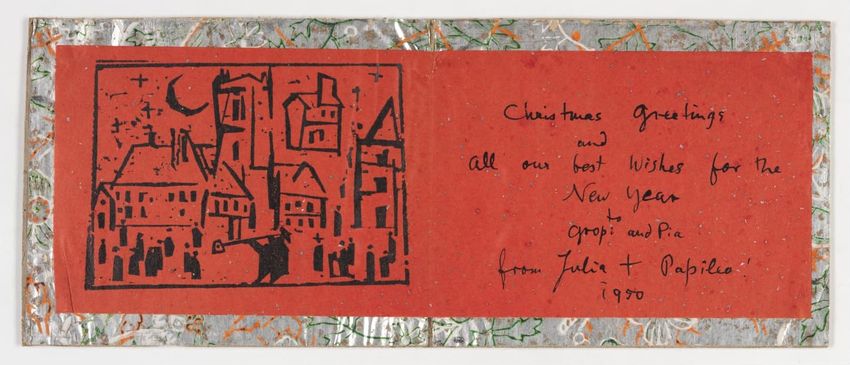 Christmas Greetings
and
all our best Wishes for the
New Year
to
Gropi and Pia
from Julia + Papileo!
1950